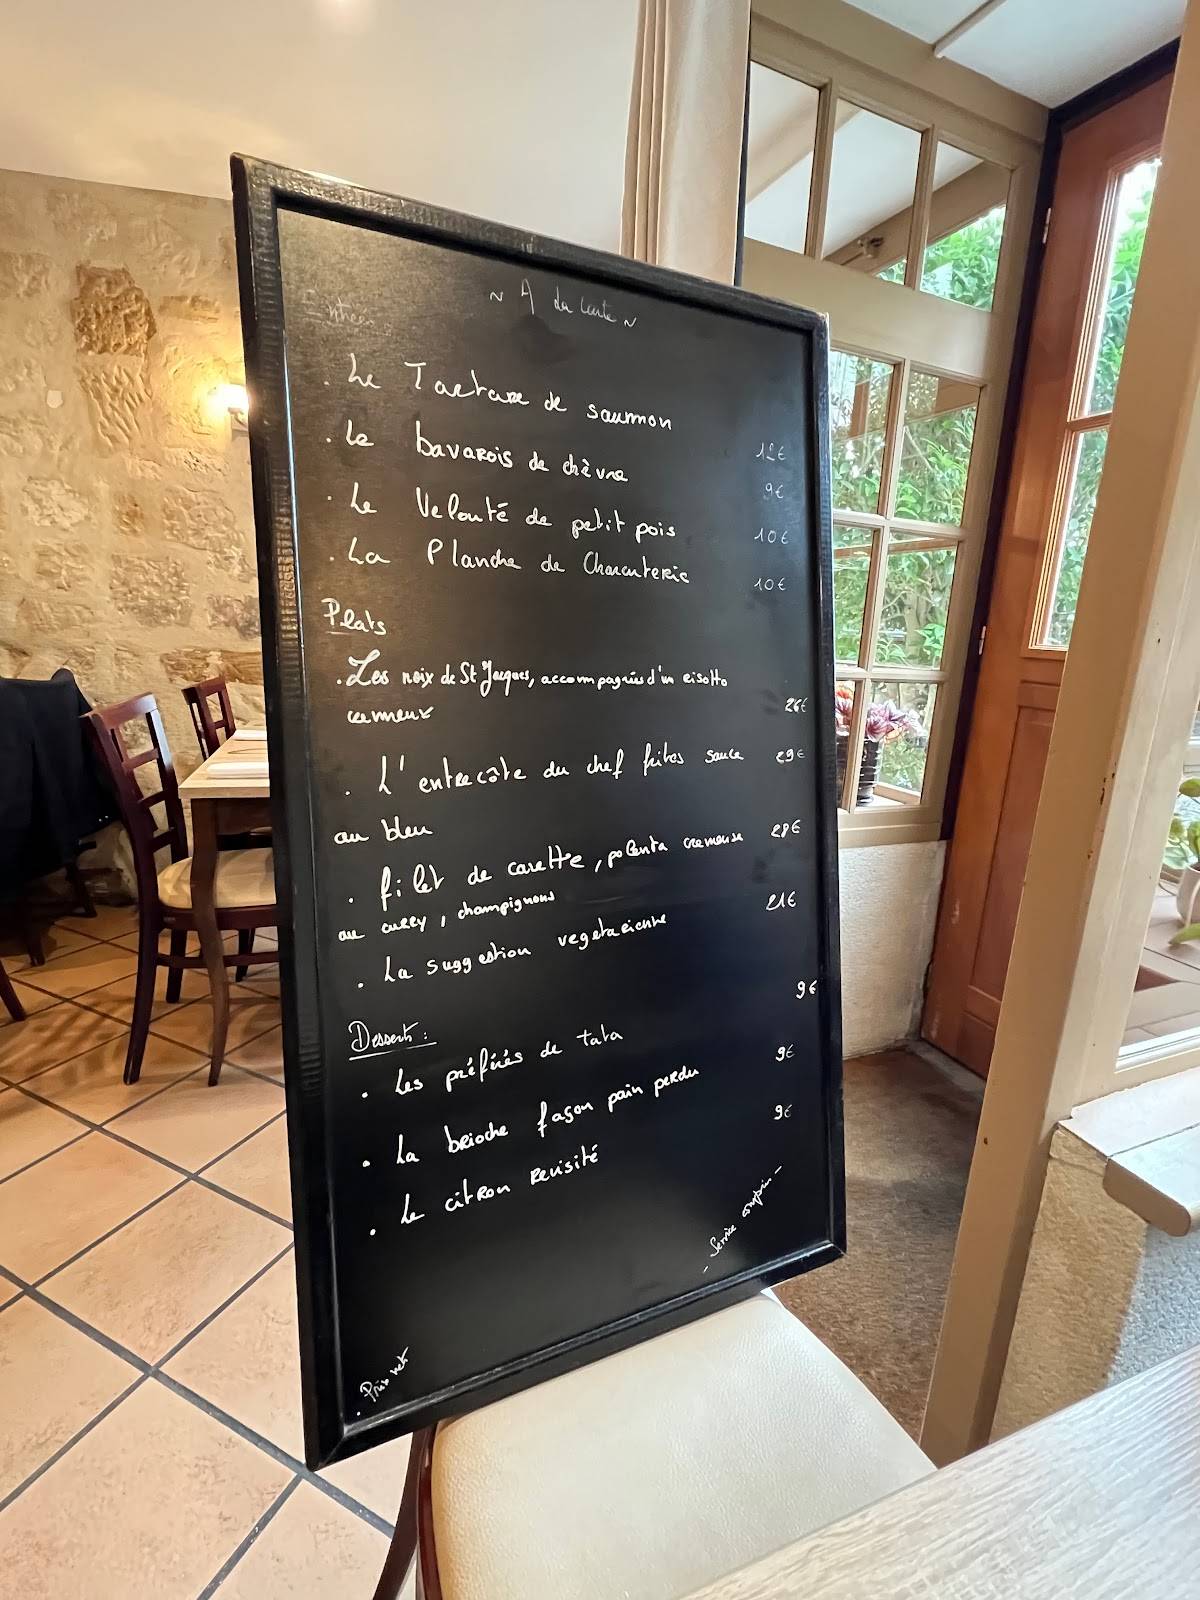 ~ A La Carte ~
Entrées :
. Le Tartare de saumon 12€
. Le bavarois de chèvre 9€
. Le Velouté de petit pois 10€
. La Planche de Charcuterie 10€
Plats
. Les noix de St Jacques, accompagnées d'un risotto
crémeux 26€
. L'entrecôte du chef frites sauce 29€
au bleu
. filet de canette, polenta cremeuse 28€
au curry, champignons
. La suggestion vegetarienne 21€
Desserts :
. Les préférés de tata 9€
. La brioche façon pain perdu 9€
. Le citron revisité 9€
- Service compris -
. Prix net